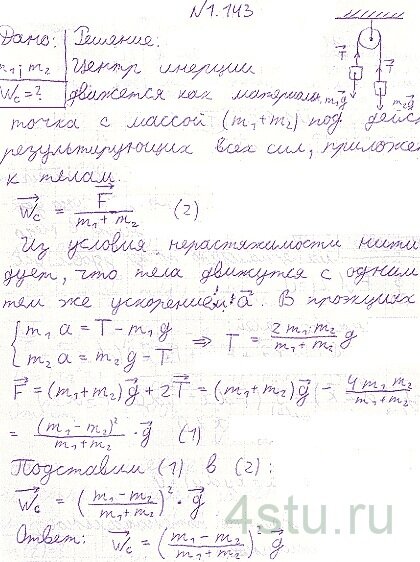 N 1.143
Дано: Решение:
m₁; m₂ Центр инерции
W_c = ? движется как материальн
точка с массой (m₁+m₂) под дейс
результирующих всех сил, приложе
к телам.
T T
m₁g m₂g
W_c = F / (m₁+m₂) (2)
Из условия нерастяжимости нити
дует, что тела движутся с одним
тем же ускорением a. В проекциях
{ m₁a = T − m₁g
{ m₂a = m₂g − T ⇒ T = 2m₁m₂ / (m₁+m₂) g
F = (m₁+m₂)g + 2T = (m₁+m₂)g − 4m₁m₂ / (m₁+m₂)
= (m₁−m₂)² / (m₁+m₂) · g (1)
Подставим (1) в (2):
W_c = ((m₁−m₂) / (m₁+m₂))² · g
4stu.ru
Ответ: W_c = ((m₁−m₂) / (m₁+m₂))² g